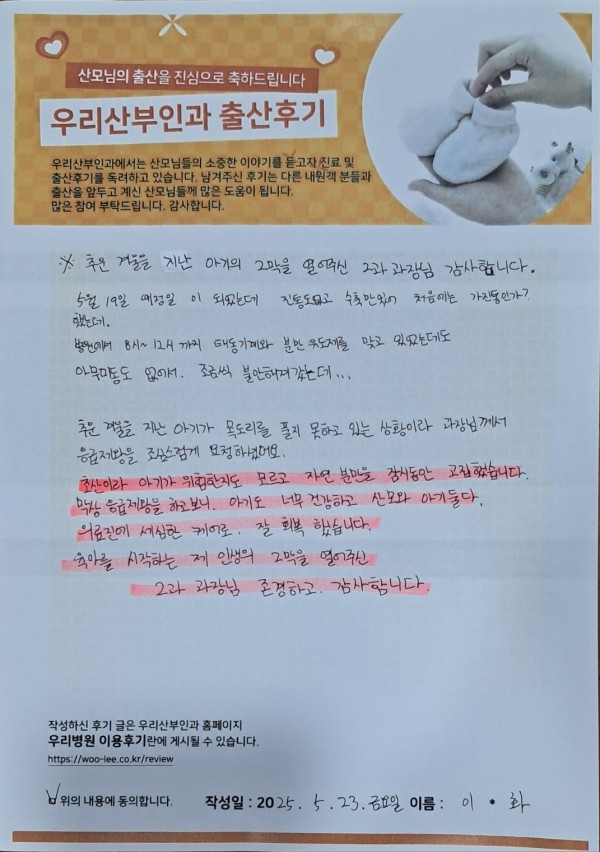 산모님의 출산을 진심으로 축하드립니다
우리산부인과 출산후기
우리산부인과에서는 산모님들의 소중한 이야기를 듣고자 진료 및
출산후기를 독려하고 있습니다. 남겨주신 후기는 다른 내원객 분들과
출산을 앞두고 계신 산모님들께 많은 도움이 됩니다.
많은 참여 부탁드립니다. 감사합니다.
※ 추운 겨울을 지난 아기의 2막을 열어주신 2과 과장님 감사합니다.
5월 19일 예정일 이 되었는데 진통도없고 수축만있어 처음에는 가진통인가?
했는데.
병원에서 8시~12시 까지 태동기계와 분만 유도제를 맞고 있었는데도
아무미동도 없어서. 조금씩 불안해져갔는데...
추운 겨울을 지난 아기가 목도리를 풀지 못하고 있는 상황이라 과장님께서
응급제왕을 조심스럽게 요청하셨어요.
초산이라 아기가 위험한지도 모르고 자연 분만을 잠시동안 고집했었습니다.
막상 응급제왕을 하고보니. 아기도 너무 건강하고 산모와 아기둘다.
의료진에 세심한 케어로. 잘 회복 했습니다.
육아를 시작하는 제 인생의 2막을 열어주신
2과 과장님 존경하고. 감사합니다.
작성하신 후기 글은 우리산부인과 홈페이지
우리병원 이용후기란에 게시될 수 있습니다.
https://woo-lee.co.kr/review
위의 내용에 동의합니다. 작성일 : 2025. 5. 23. 금요일 이름 : 이 * 화